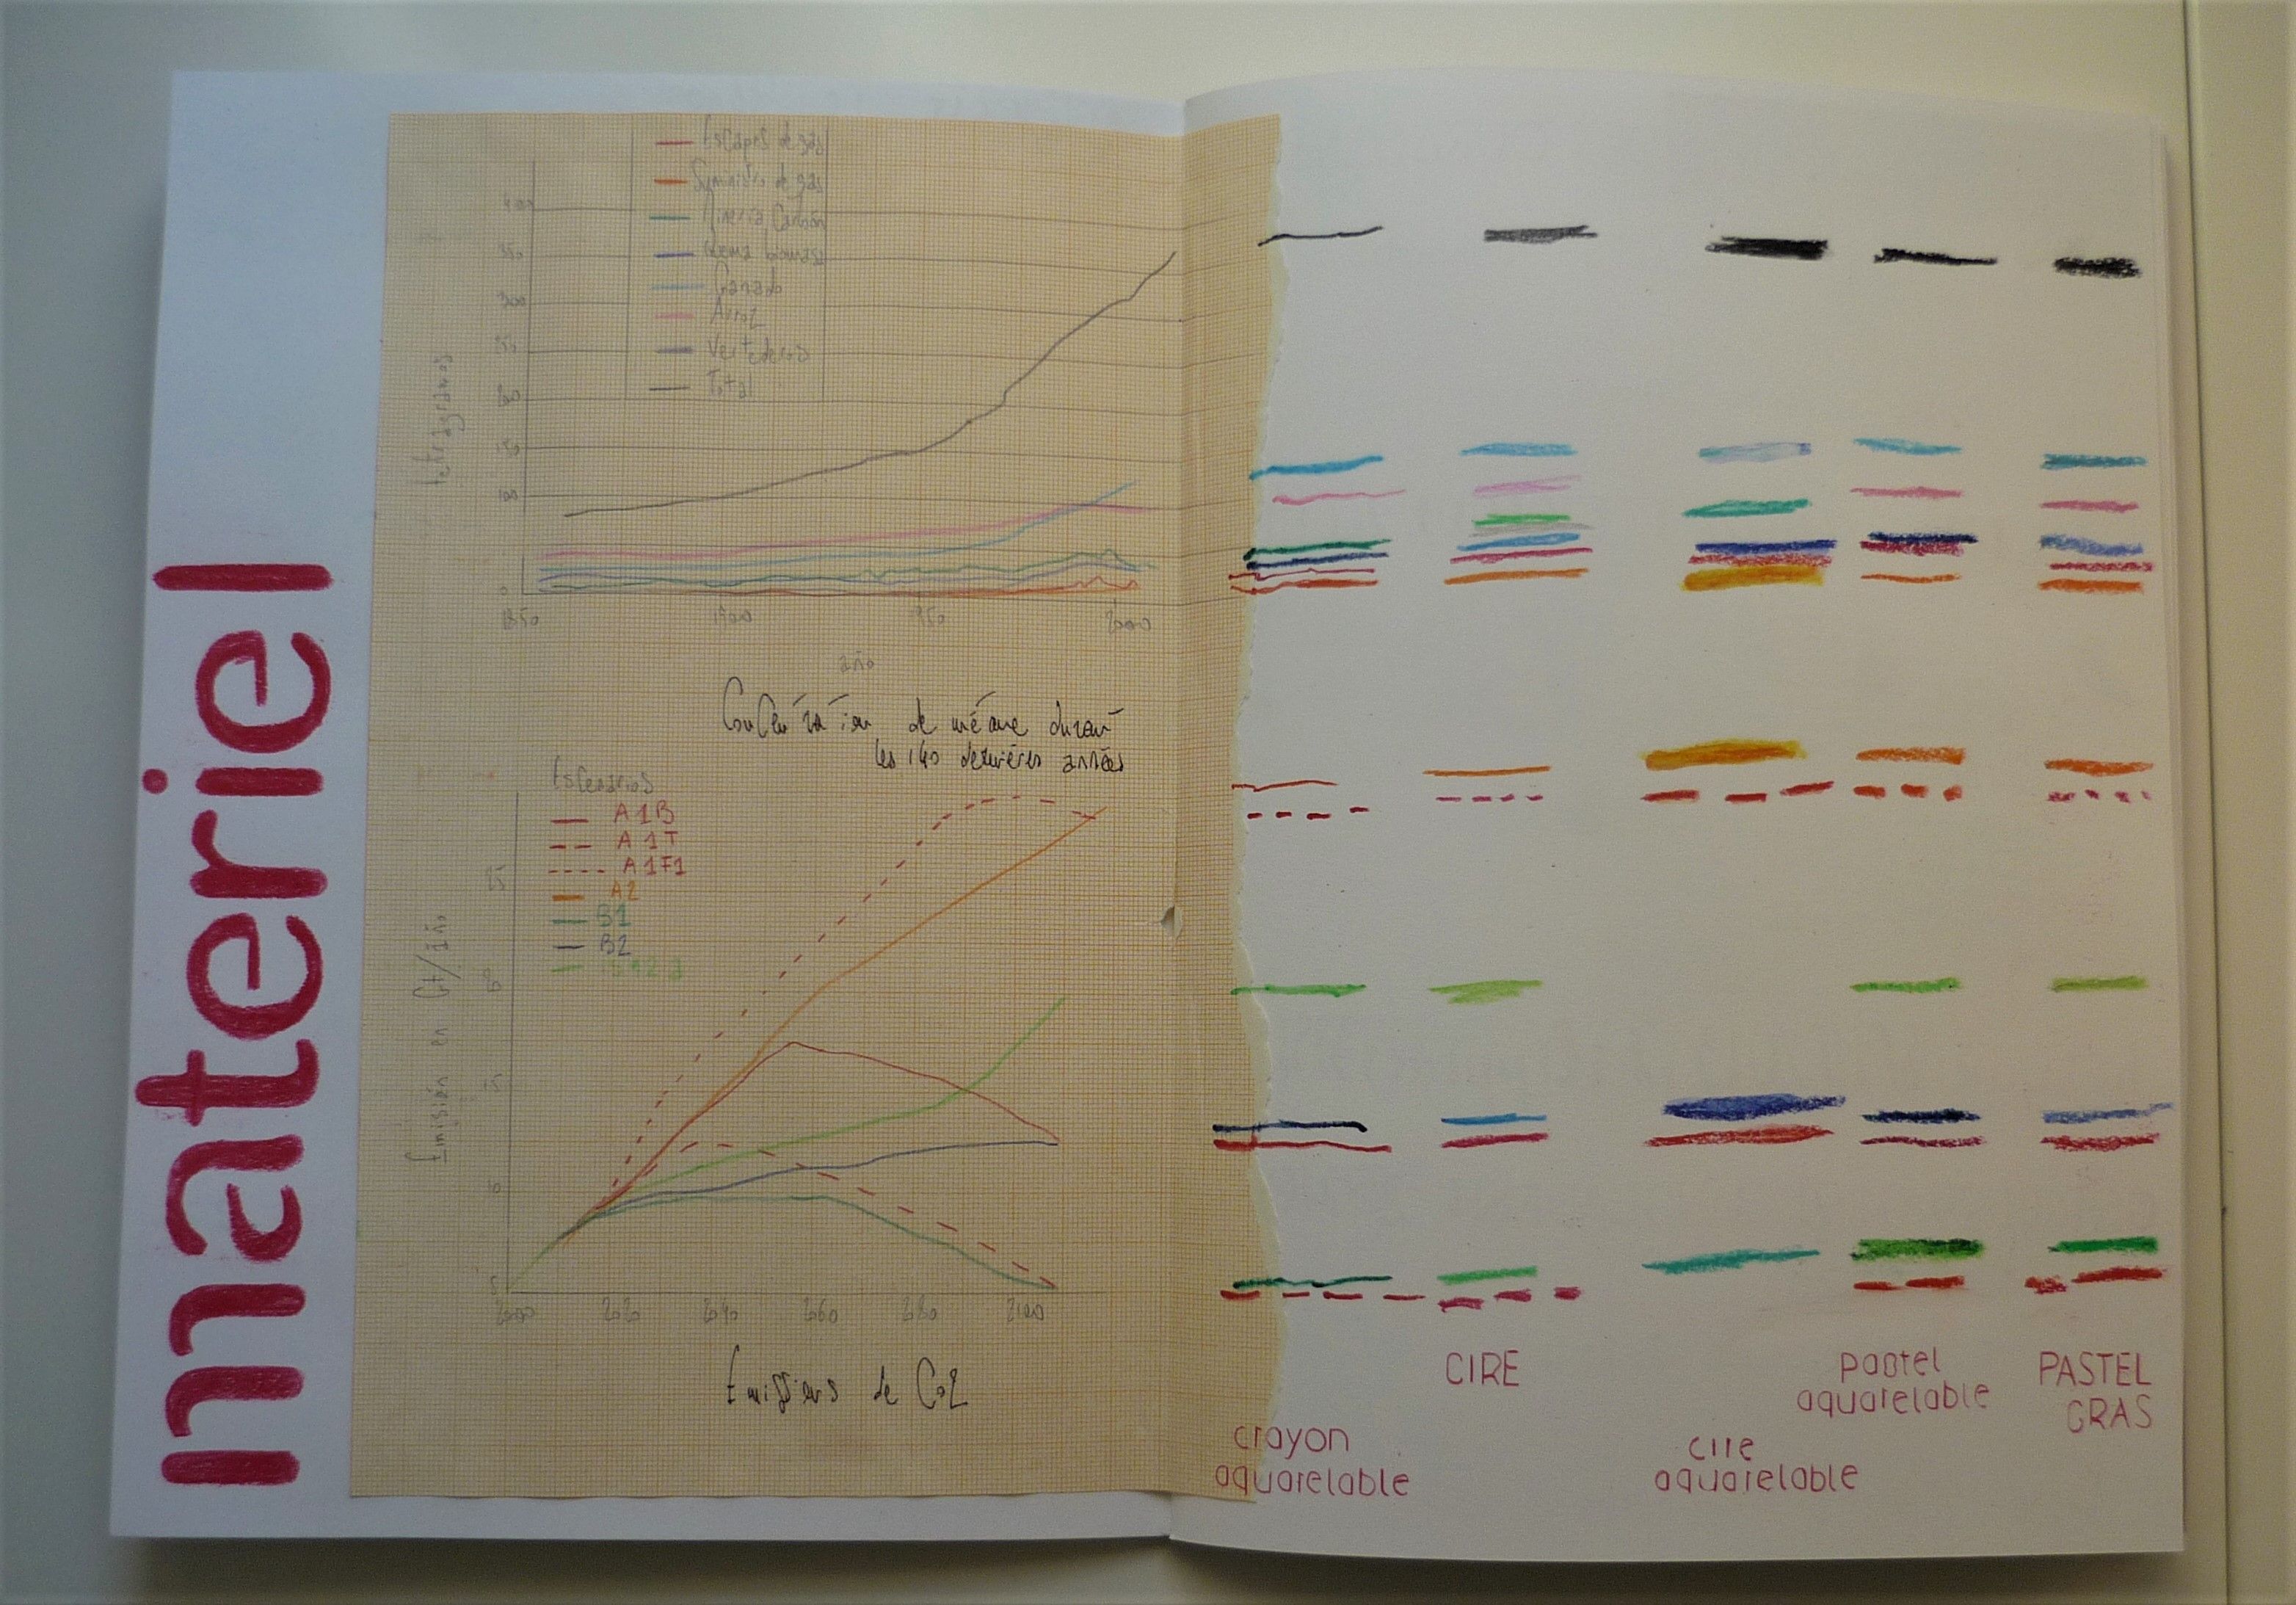 materiel
Escapes de gas
Suministro de gas
Minería Carbón
Quema biomasa
Ganado
Arroz
Vertederos
Total
400
350
300
250
200
150
100
0
Petragramos
1850 1900 1950 2000
año
Concentration de méthane durant
les 140 dernières années
Escenarios
A1B
A1T
A1F1
A2
B1
B2
IS92a
25
20
15
10
5
Emisión en Gt/año
2000 2020 2040 2060 2080 2100
Emissions de Co2
crayon
aquarelable
CIRE
cire
aquarelable
pastel
aquarelable
PASTEL
GRAS